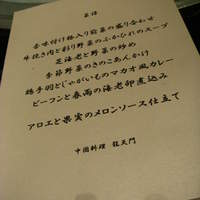 菜譜
香味付け 入り前菜の盛り合わせ
蒸し鶏肉と彩り野菜のふかひれのスープ
芝海老と野菜の炒め
季節野菜のきのこあんかけ
鶏手羽とじゃがいものマカオ風カレー
ビーフンと春雨の海老卵煮込み
アロエと果実のメロンソース仕立て
中国料理 龍天門